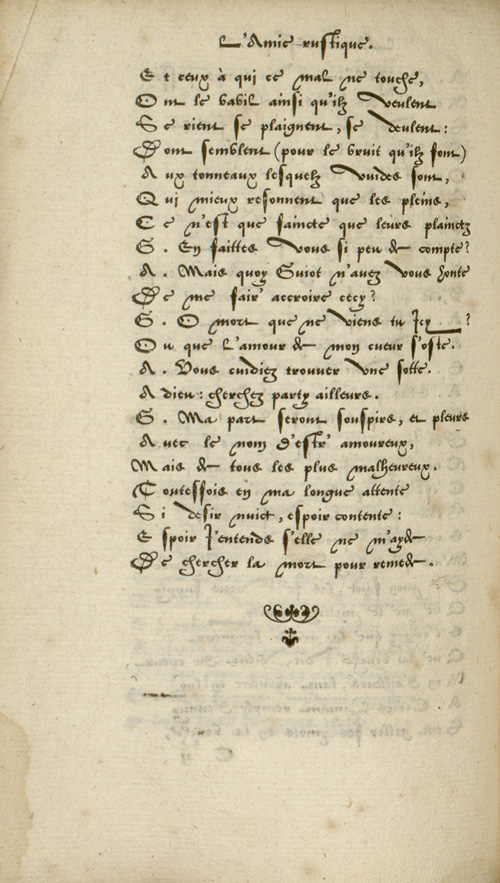 L'Amie rustique.
Et ceux à qui ce mal ne touche,
Ont le babil ainsi qu'ilz veulent
Se rient se plaignent, se deulent:
Dont semblent (pour le bruit qu'ilz font)
Aux tonneaux lesquelz vuides sont,
Qui mieux resonnent que les pleins,
Ce n'est que faincte que leurs plainctz
G. En faittes vous si peu de compte?
A. Mais quoy Guiot n'avez vous honte
De me fair' accroire cecy?
G. O mort que ne viens tu Icy?
Ou que L'amour de mon cueur s'oste.
A. Vous cuidiez trouver une sotte.
Adieu: cherchez party ailleurs.
G. Ma part seront souspirs, et pleurs
Avec le nom d'estr' amoureux,
Mais de tous les plus malheureux.
Toutesfois en ma longue attente
Si desir nuict, espoir contente:
Espoir J'entends s'elle ne m'ayde
De chercher la mort pour remede.